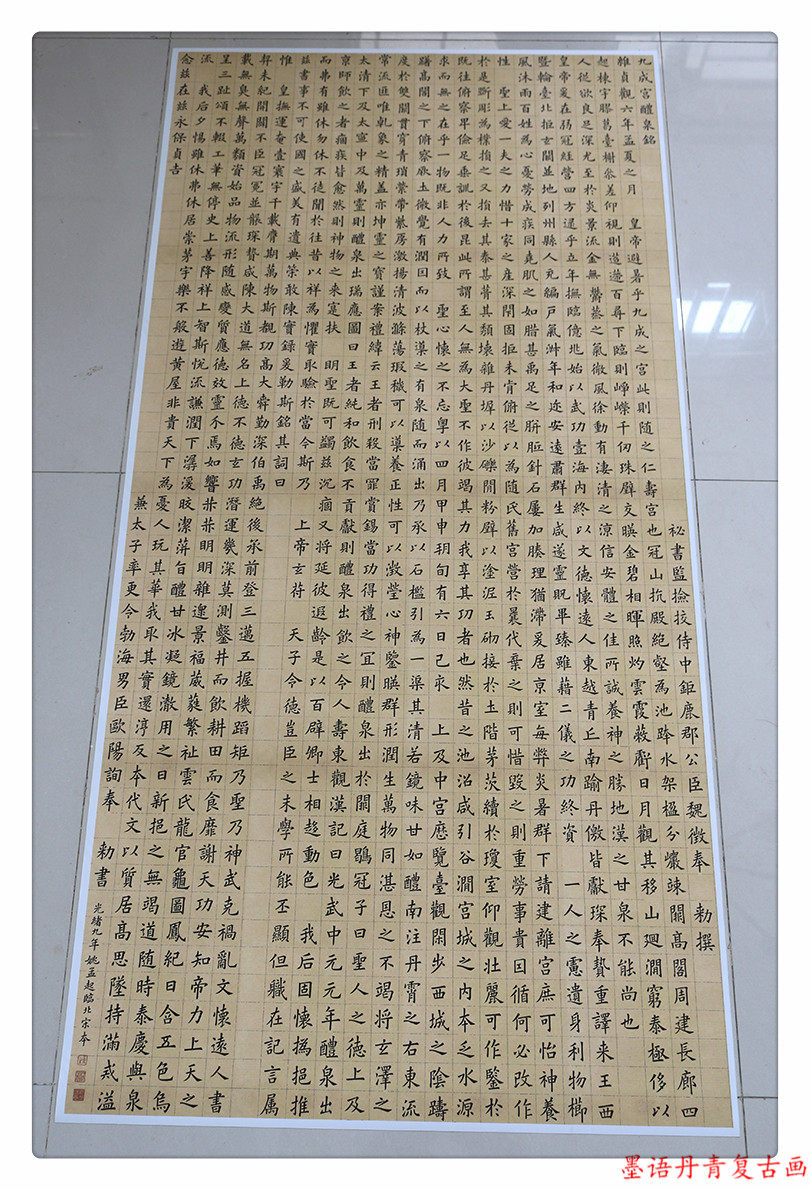 九成宮醴泉銘 祕書監撿挍侍中鉅鹿郡公臣魏徵奉 勅撰
維貞觀六年孟夏之月 皇帝避暑乎九成之宮此則隨之仁壽宮也冠山抗殿絕壑為池跨水架楹分巗竦闕高閣周建長廊四
起棟宇膠葛臺榭叅差仰視則迢遰百尋下臨則崢嶸千仞珠璧交暎金碧相暉照灼雲霞蔽虧日月觀其移山迴澗窮泰極侈以
人從欲良足深尤至於炎景流金無鬱蒸之氣微風徐動有淒清之涼信安體之佳所誠養神之勝地漢之甘泉不能尚也
皇帝爰在弱冠經營四方逮乎立年撫臨億兆始以武功壹海內終以文德懷遠人東越青丘南踰丹儌皆獻琛奉贄重譯来王西
暨輪臺北拒玄闕並地列州縣人充編戶氣淑年和迩安遠肅群生咸遂靈貺畢臻雖藉二儀之功終資 一人之慮遺身利物櫛
風沐雨百姓為心憂勞成疾同堯肌之如腊甚禹足之胼胝針石屢加腠理猶滯爰居京室每弊炎暑群下請建離宮庶可怡神養
性 聖上愛一夫之力惜十家之產深閉固拒未肯俯從以為隨氏舊宮營於曩代棄之則可惜毀之則重勞事貴因循何必改作
於是斲彫為樸損之又損去其泰甚葺其頹壞雜丹墀以沙礫間粉壁以塗泥玉砌接於土階茅茨續於瓊室仰觀壯麗可作鑒於
既往俯察卑儉足垂訓於後昆此所謂至人無為大聖不作彼竭其力我享其功者也然昔之池沼咸引谷澗宮城之內本乏水源
求而無之在乎一物既非人力所致 聖心懷之不忘粵以四月甲申朔旬有六日己亥 上及中宮歷覽臺觀閑步西城之陰躊
躇高閣之下俯察厥土微覺有潤因而以杖導之有泉隨而涌出乃承以石檻引為一渠其清若鏡味甘如醴南注丹霄之右東流
度於雙闕貫穿青瑣縈帶紫房激揚清波滌蕩瑕穢可以導養正性可以澂瑩心神鑒暎群形潤生萬物同湛恩之不竭將玄澤之
常流匪唯乾象之精蓋亦坤靈之寶謹案禮緯云王者刑殺當罪賞錫當功得禮之宜則醴泉出於闕庭鶡冠子曰聖人之德上及
太清下及太寧中及萬靈則醴泉出瑞應圖曰王者純和飲食不貢獻則醴泉出飲之令人壽東觀漢記曰光武中元元年醴泉出
京師飲之者痼疾皆愈然則神物之来寔扶 明聖既可蠲茲沉痼又將延彼遐齡是以百辟卿士相趨動色 我后固懷撝挹推
而弗有雖休勿休不徒聞於往昔以祥為懼實取驗於當今斯乃 上帝玄符 天子令德豈臣之末學所能丕顯但職在記言屬
茲書事不可使國之盛美有遺典策敢陳實錄爰勒斯銘其詞曰
惟 皇撫運奄壹寰宇千載膺期萬物斯覩功高大舜勤深伯禹絕後承前登三邁五握機蹈矩乃聖乃神武克禍亂文懷遠人書
昇未紀開闢不臣冠冕並襲琛贄咸陳大道無名上德不德玄功潛運幾深莫測鑿井而飲耕田而食靡謝天功安知帝力上天之
載無臭無聲萬類資始品物流形隨感變質應德效靈介焉如響赫赫明明雜遝景福葳蕤繁祉雲氏龍官龜圖鳳紀日含五色烏
呈三趾頌不輟工筆無停史上善降祥上智斯悅流謙潤下潺湲皎潔蓱旨醴甘冰凝鏡澈用之日新挹之無竭道隨時泰慶與泉
流 我后夕惕雖休弗休居崇茅宇樂不般遊黃屋非貴天下為憂人玩其華我取其實還淳反本代文以質居高思墜持滿戒溢
念茲在茲永保貞吉 兼太子率更令勃海男臣歐陽詢奉 勅書
光緒九年姚孟起臨北宋本
墨语丹青复古画